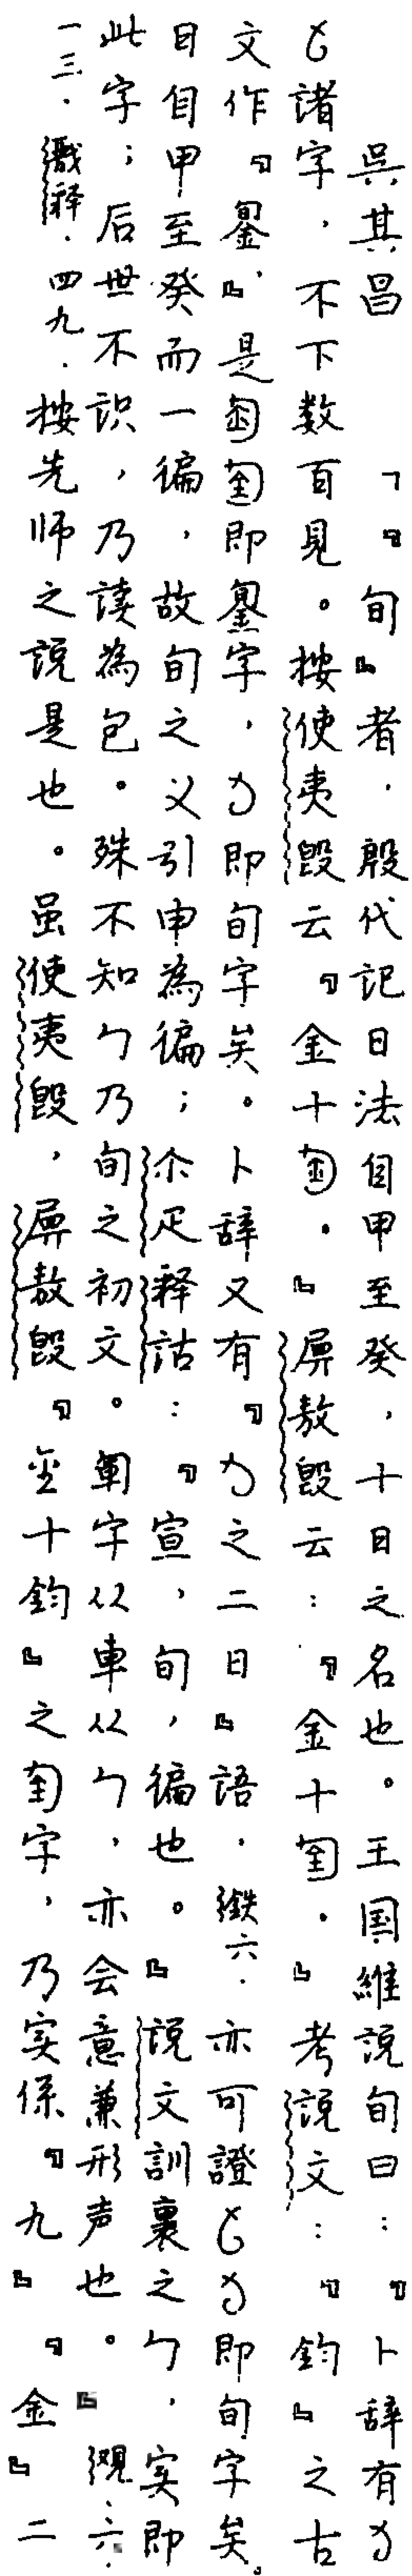 吳其昌　「『旬』者，殷代記日法自甲至癸，十日之名也。王国維說旬曰：『卜辞有
諸字，不下数百見。按使夷毁云『金十㔬。』屏敖毁云：『金十㔬。』考說文：『鈞』之古
文作『銞』，是㔬㔬即銞字，即旬字矣。卜辞又有『之二日』語，鉄六．亦可證即旬字矣。
自甲至癸而一徧，故旬之义引申為徧；尒疋释詁：『宣，旬，徧也。』說文訓裹之勹，实即
此字；后世不識，乃读為包。殊不知勹乃旬之初文。軍字从車从勹，亦会意兼形声也。』觀．六．
一三．戩释．四九．按先师之說是也。虽使夷毁，屏敖毁『金十鈞』之㔬字，乃实係『九』『金』二